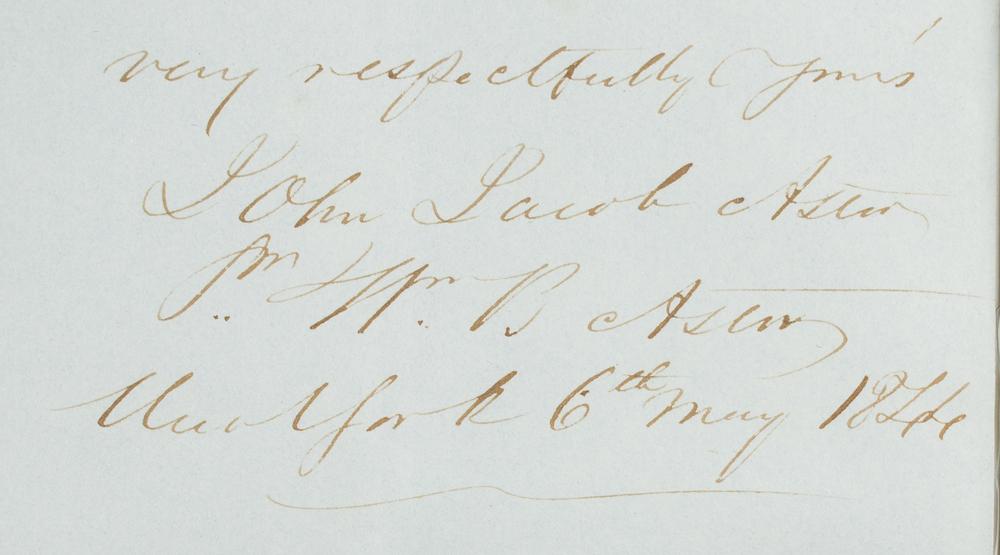 very respectfully Yours
John Jacob Astor
pr Wm B Astor
New York 6th May 1844